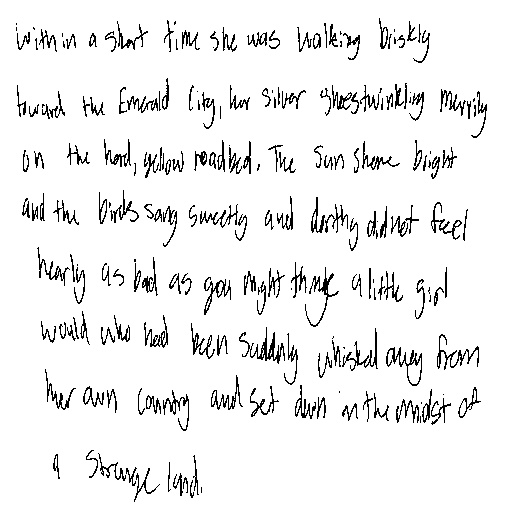 within a short time she was walking briskly
toward the Emerald City, her silver shoes twinkling merrily
on the hard, yellow roadbed. The sun shone bright
and the birds sang sweetly and dorthy did not feel
nearly as bad as you might think a little girl
would who had been suddenly whisked away from
her own country and set down in the midst of
a strange land.